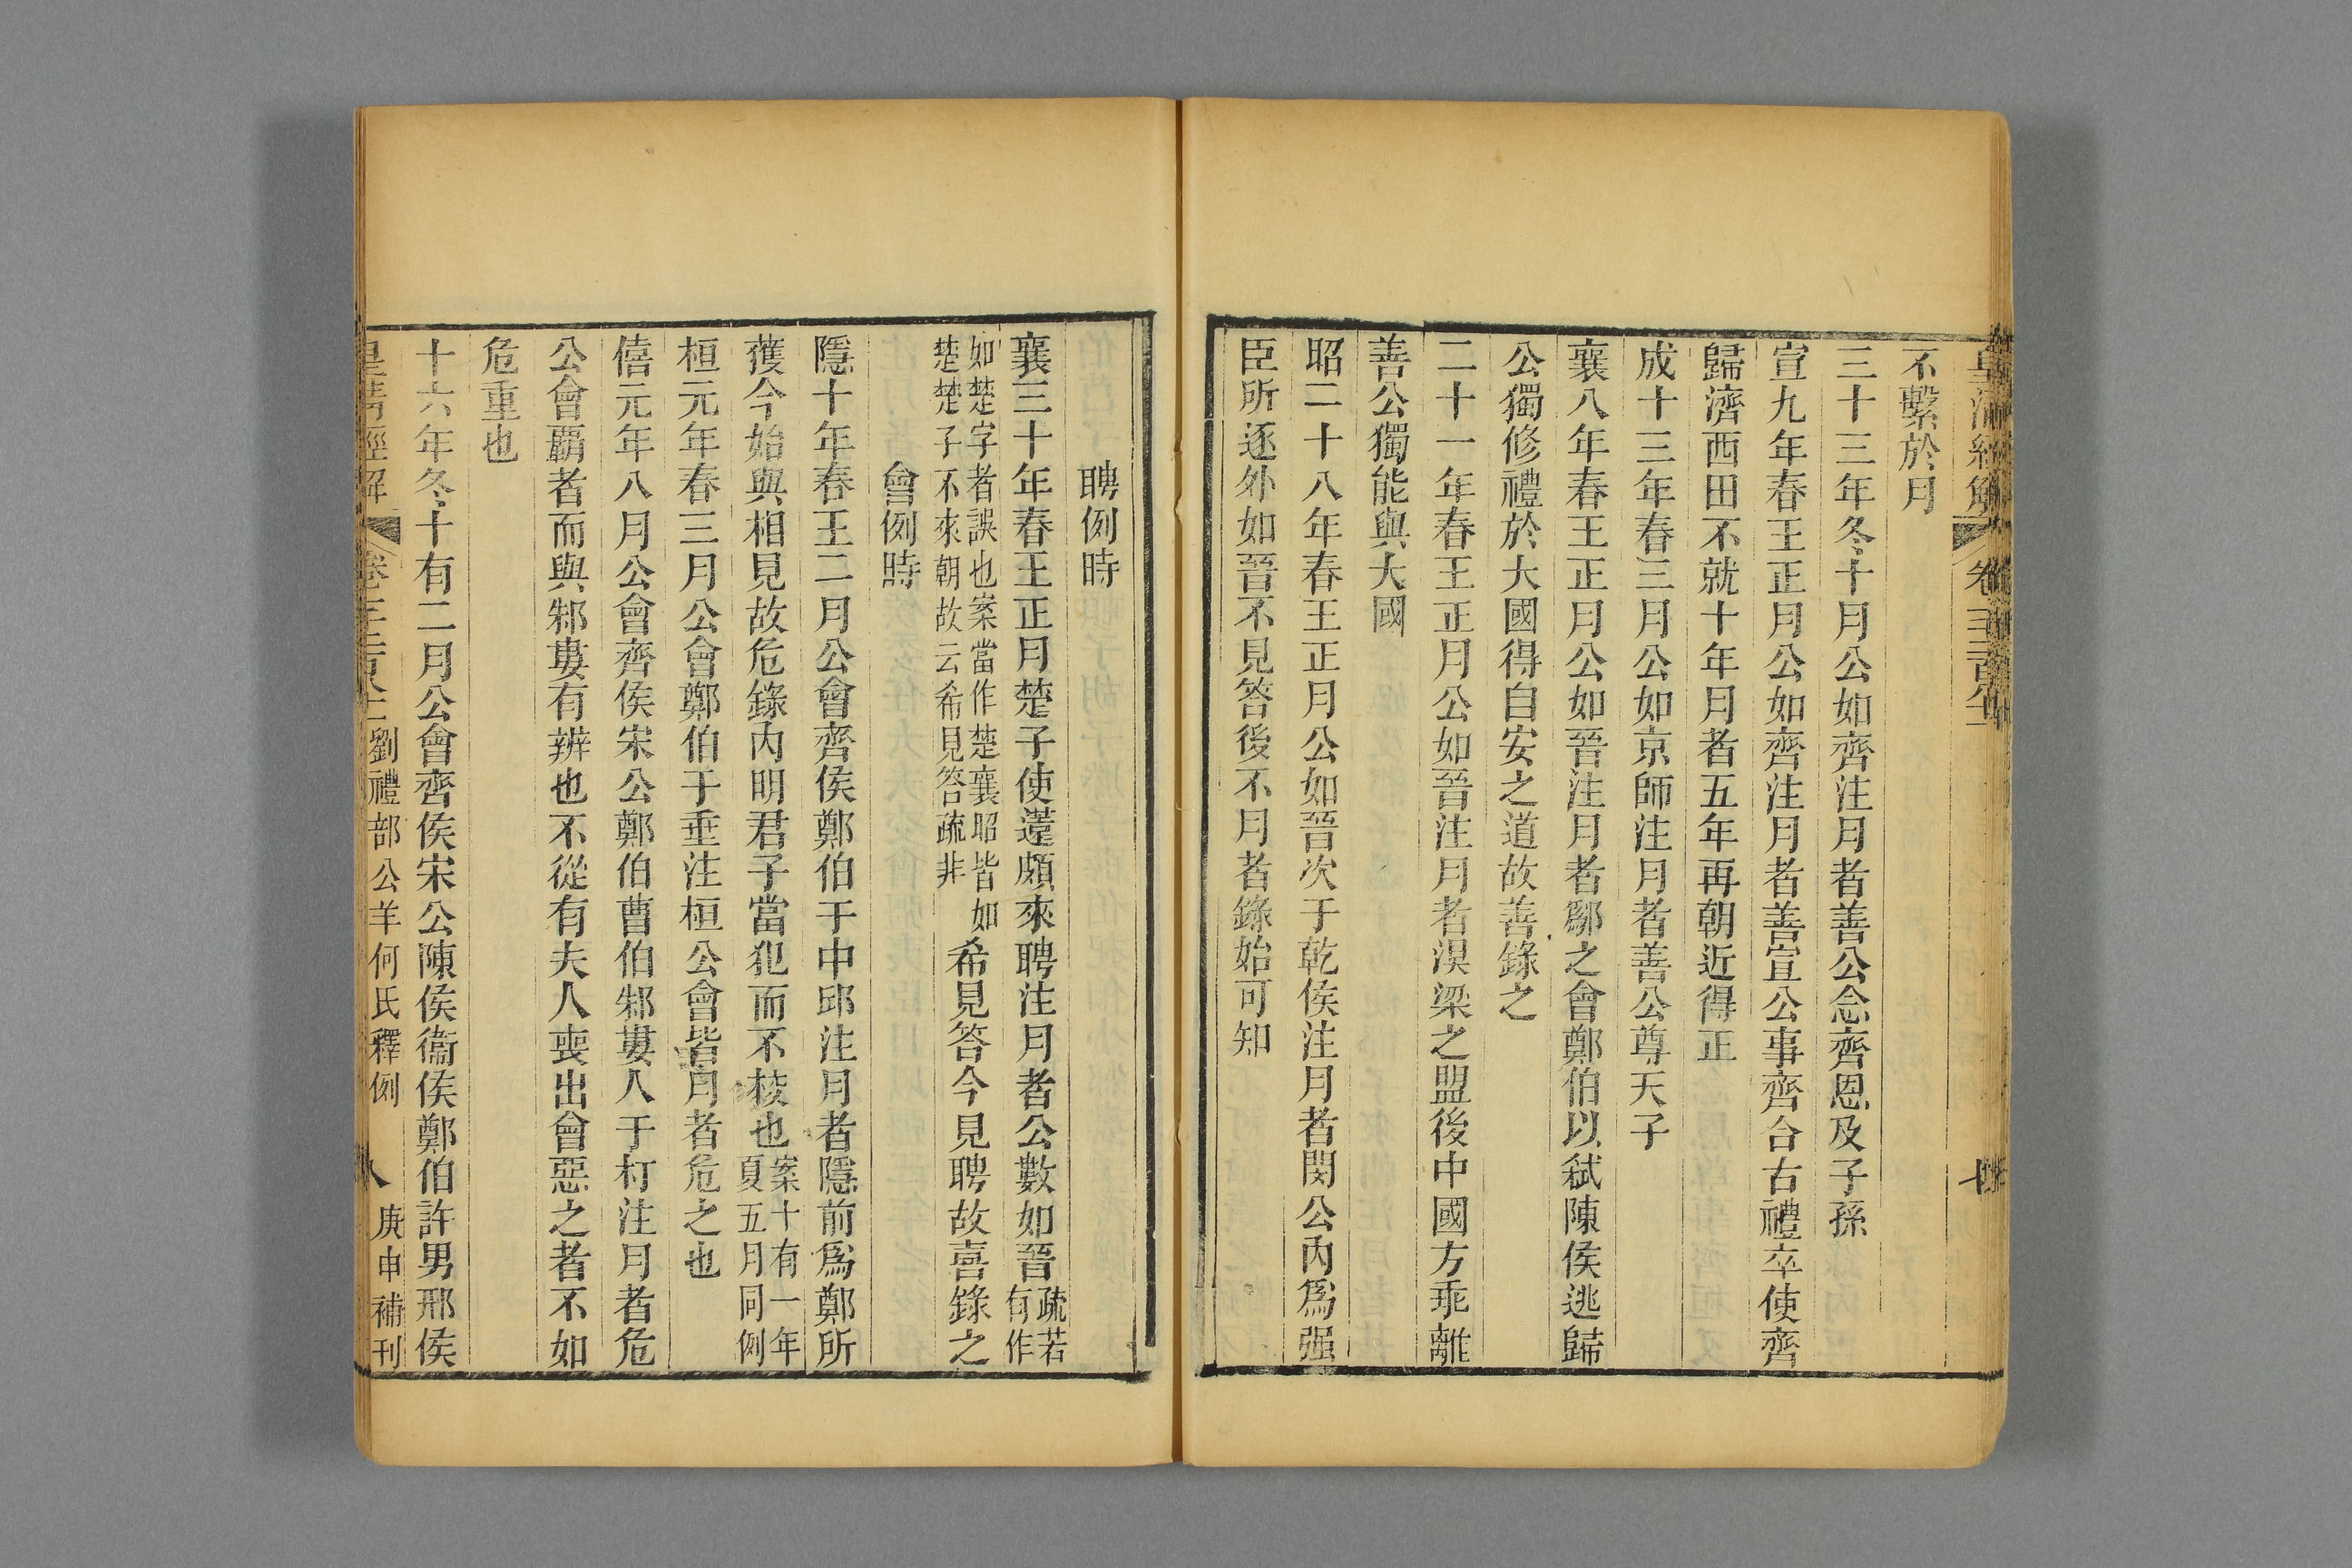 皇清經解 卷千二百八十一 七
不繫於月
三十三年冬十月公如齊注月者善公念齊恩及子孫
宣九年春王正月公如齊注月者善宣公事齊合古禮卒使齊
歸濟西田不就十年月者五年再朝近得正
成十三年春三月公如京師注月者善公尊天子
襄八年春王正月公如晉注月者鄬之會鄭伯以弒陳侯逃歸
公獨修禮於大國得自安之道故善錄之
二十一年春王正月公如晉注月者湨梁之盟後中國方乖離
善公獨能與大國
昭二十八年春王正月公如晉次于乾侯注月者閔公內爲强
臣所逐外如晉不見答後不月者錄始可知
聘例時
襄三十年春王正月楚子使薳頗來聘注月者公數如晉疏若有作
如楚字者誤也案當作楚襄昭皆如楚楚子不來朝故云希見答疏非希見答今見聘故喜錄之
會例時
隱十年春王二月公會齊侯鄭伯于中邱注月者隱前爲鄭所
獲今始與相見故危錄內明君子當犯而不校也案十有一年夏五月同例
桓元年春三月公會鄭伯于垂注桓公會皆月者危之也
僖元年八月公會齊侯宋公鄭伯曹伯邾婁人于朾注月者危
公會霸者而與邾婁有辨也不從有夫人喪出會惡之者不如
危重也
十六年冬十有二月公會齊侯宋公陳侯衞侯鄭伯許男邢侯
皇清經解 劉禮部公羊何氏釋例 八 庚申補刊